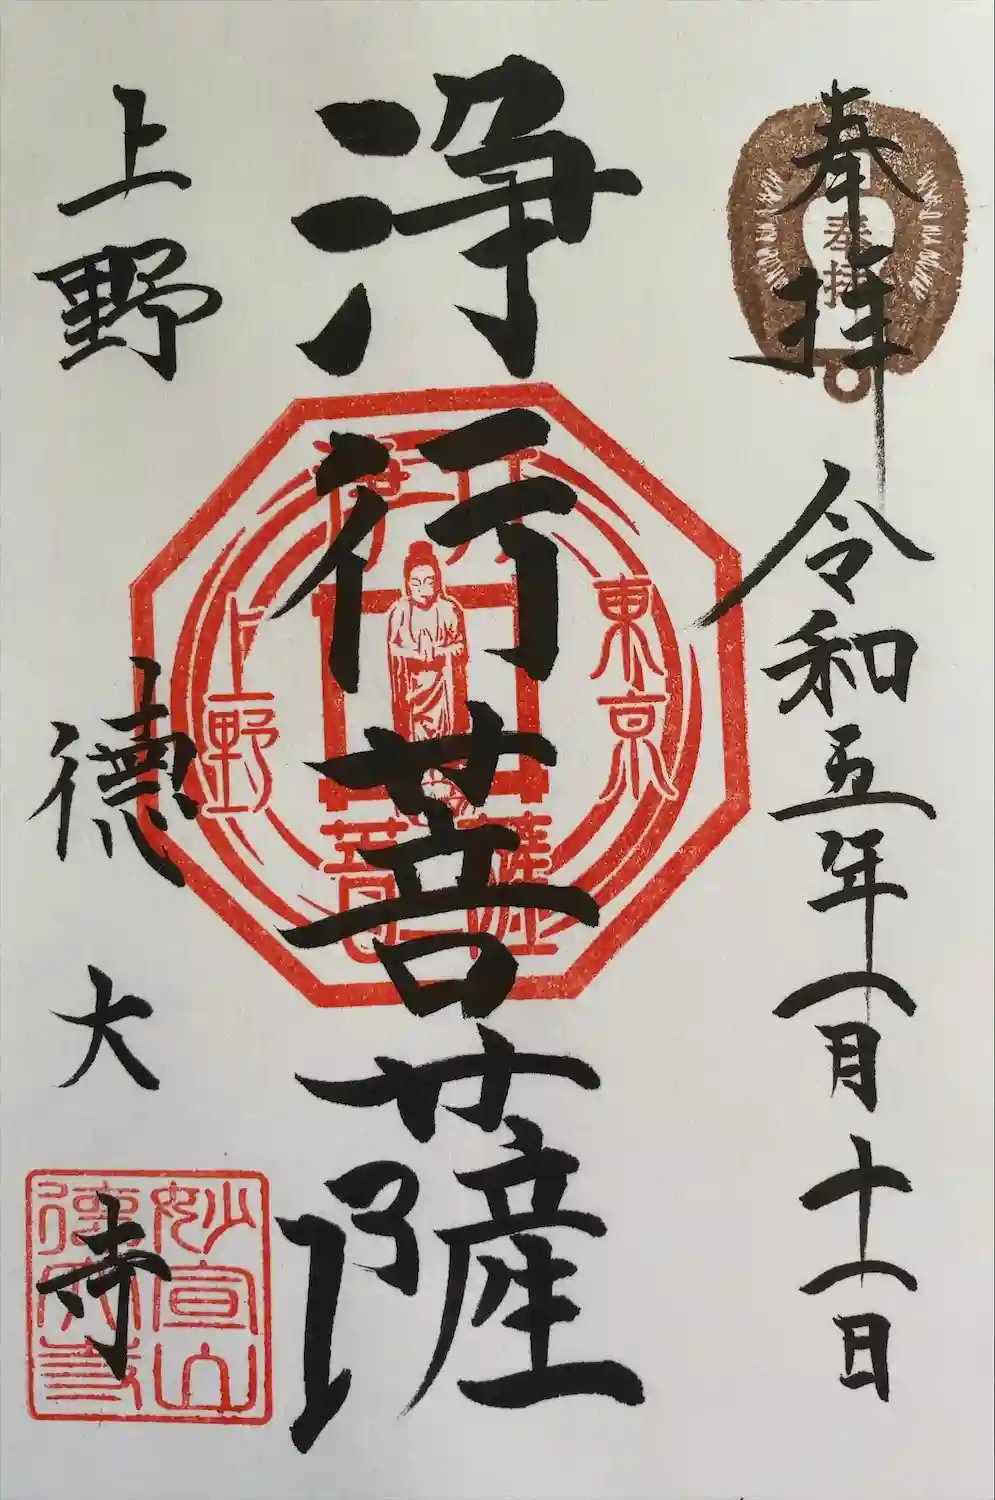 奉拝
奉拝
令和五年一月十一日
浄行菩薩
浄行
東京
上野
菩薩
上野
徳大寺
妙宣山
徳大寺